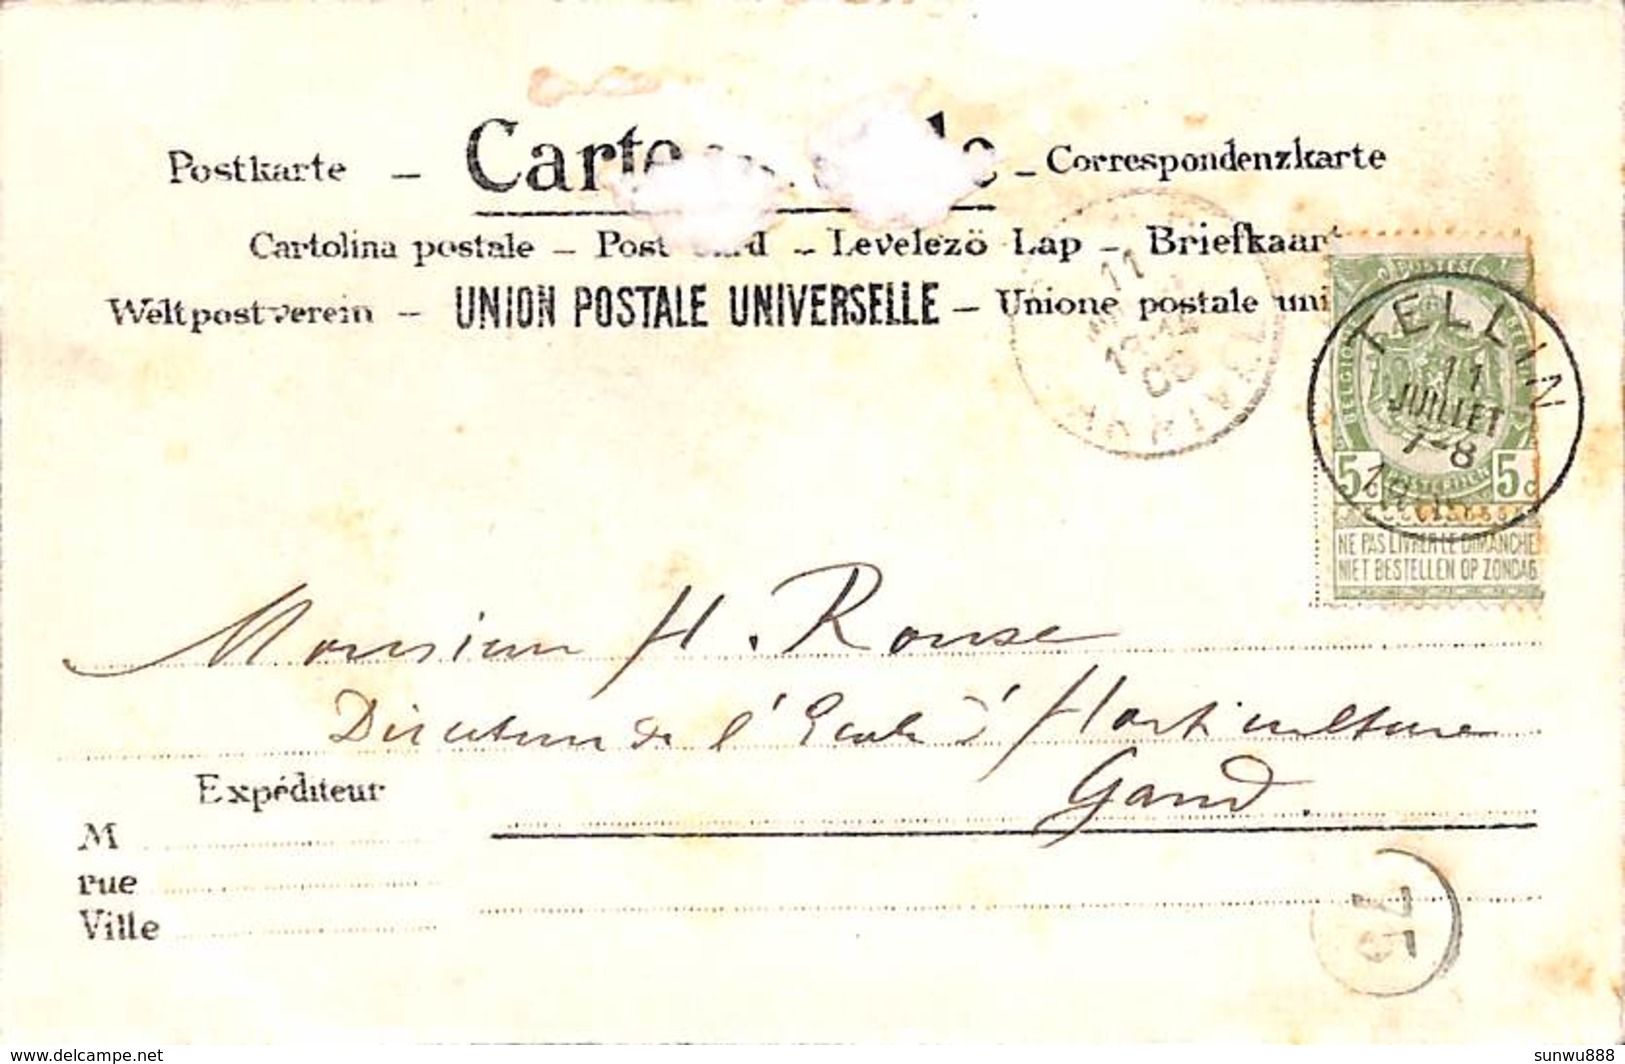 Postkarte – Carte – Correspondenzkarte
Cartolina postale – Post – Levelezö Lap – Briefkaart
Weltpostverein – UNION POSTALE UNIVERSELLE – Unione postale uni
11
ARRIVA
TELLIN
11
JUILLET
7-8
POSTES
5c 5c
NE PAS LIVRER LE DIMANCHE
NIET BESTELLEN OP ZONDAG
Monsieur H. Rouse
Directeur de l'Ecole d'Horticulture
Gand.
Expéditeur
M
rue
Ville
delcampe.net
sunwu888